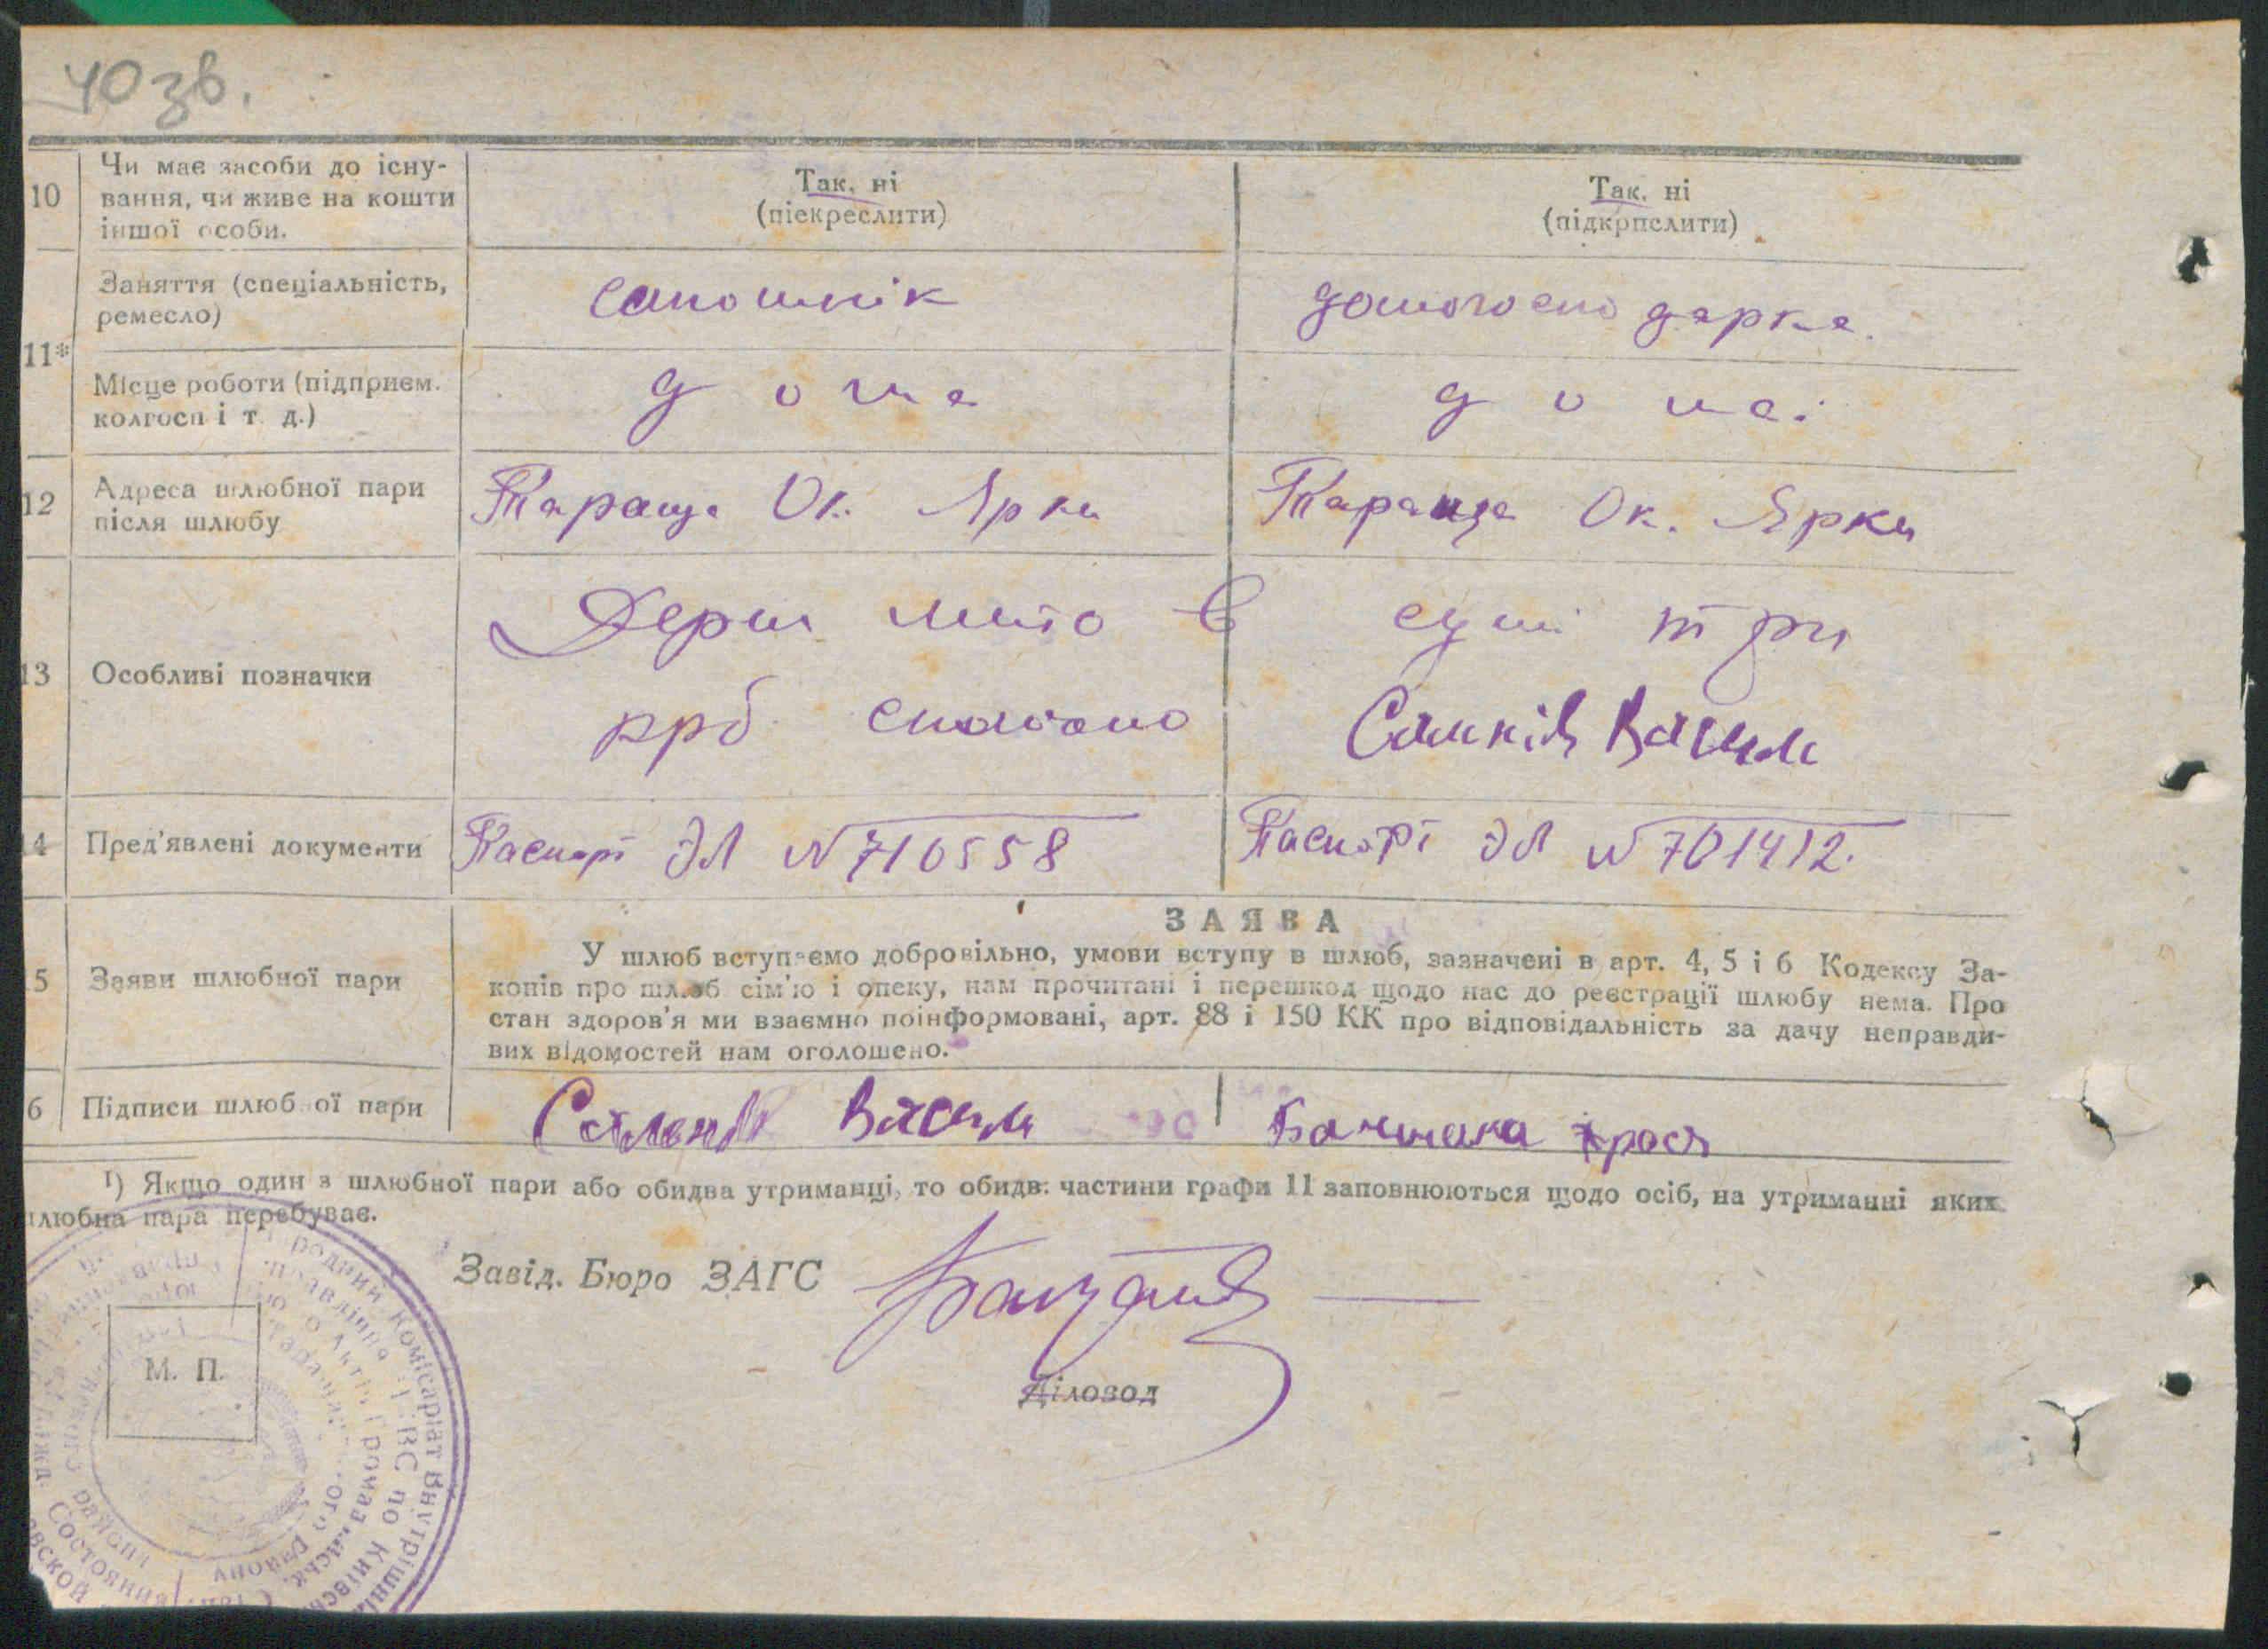 40 зв.
10 Чи має засоби до існу-
вання, чи живе на кошти
іншої особи.
Так, ні
(піекреслити)
Так, ні
(підкрпслити)
11* Заняття (спеціальність,
ремесло)
сапошнік
домогосподарка.
Місце роботи (підприєм.
колгосп і т. д.)
дома
дома.
12 Адреса шлюбної пари
після шлюбу
Тараща Ок. Ярки
Тараща Ок. Ярки
13 Особливі позначки
Держ мито в сумі три
крб. сплачено
Василь
14 Пред'явлені документи
Паспорт ЭЛ N 710558
Паспорт ЭЛ N 701412.
5 Заяви шлюбної пари
ЗАЯВА
У шлюб вступаємо добровільно, умови вступу в шлюб, зазначені в арт. 4, 5 і 6 Кодексу За-
конів про шлюб сім'ю і опеку, нам прочитані і перешкод щодо нас до реєстрації шлюбу нема. Про
стан здоров'я ми взаємно поінформовані, арт. 88 і 150 КК про відповідальність за дачу неправди-
вих відомостей нам оголошено.
6 Підписи шлюбної пари
Василь
¹) Якщо один з шлюбної пари або обидва утриманці, то обидві частини графи 11 заповнюються щодо осіб, на утриманні яких
шлюбна пара перебуває.
Завід. Бюро ЗАГС
М. П.
Діловод